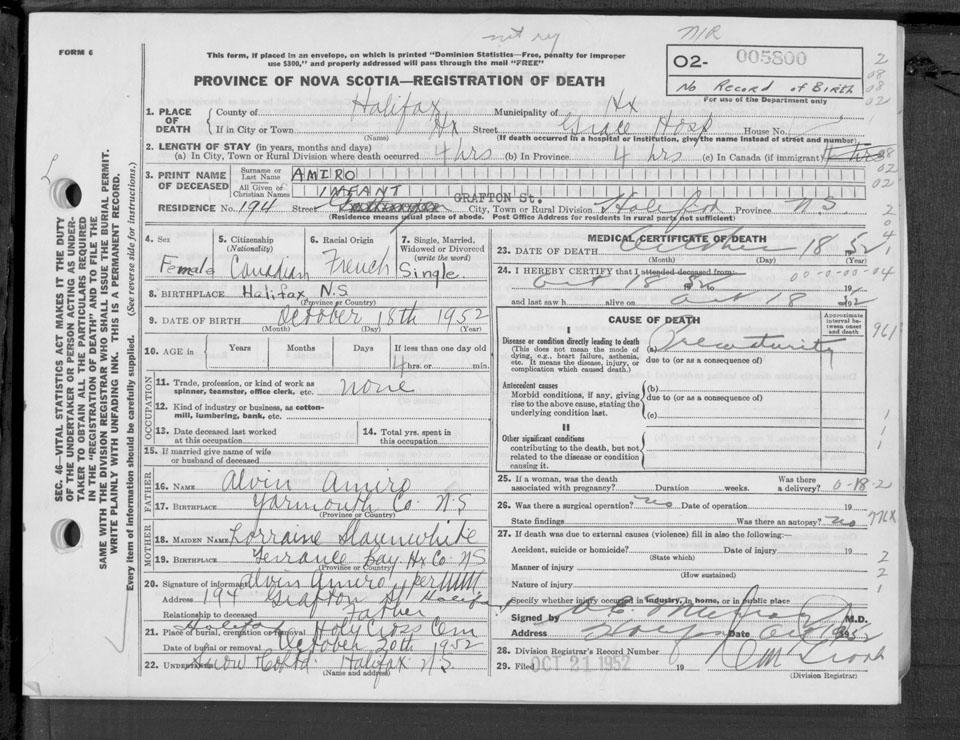 not reg
N/R
FORM 6
This form, if placed in an envelope, on which is printed "Dominion Statistics—Free, penalty for improper
use $300," and properly addressed will pass through the mail "FREE"
PROVINCE OF NOVA SCOTIA—REGISTRATION OF DEATH
02- 005800
No Record of Birth
For use of the Department only
2
08
08
02
1. PLACE OF DEATH { County of Halifax Municipality of Hx
If in City or Town Hx Street Grace Hosp House No.
(Name) (If death occurred in a hospital or institution, give the name instead of street and number)
2. LENGTH OF STAY (in years, months and days)
(a) In City, Town or Rural Division where death occurred 4 hrs (b) In Province 4 hrs (c) In Canada (if immigrant) 4 hrs
3. PRINT NAME OF DECEASED { Surname or Last Name AMIRO
All Given or Christian Names INFANT
RESIDENCE No. 194 Street GRAFTON St. City, Town or Rural Division Halifax Province N.S
(Residence means usual place of abode. Post Office Address for residents in rural parts not sufficient)
4. Sex
Female
5. Citizenship
(Nationality)
Canadian
6. Racial Origin
French
7. Single, Married,
Widowed or Divorced
(write the word)
Single.
8. BIRTHPLACE Halifax N.S.
(Province or Country)
9. DATE OF BIRTH October 18th 1952
(Month) (Day) (Year)
10. AGE in { Years Months Days If less than one day old
4 hrs. or min.
OCCUPATION
11. Trade, profession, or kind of work as
spinner, teamster, office clerk, etc. none
12. Kind of industry or business, as cotton-
mill, lumbering, bank, etc.
13. Date deceased last worked
at this occupation
14. Total yrs. spent in
this occupation
15. If married give name of wife
or husband of deceased
FATHER
16. NAME Alvin Amiro
17. BIRTHPLACE Yarmouth Co N.S
(Province or Country)
MOTHER
18. MAIDEN NAME Lorraine Slaunwhite
19. BIRTHPLACE Terrance Bay Hx Co. N.S
(Province or Country)
20. Signature of informant Alvin Amiro per
Address 194 Grafton St Halifax
Relationship to deceased Father
21. Place of burial, cremation or removal Halifax Holy Cross Cem
Date of burial or removal October 20th 1952
22. UNDERTAKER Snow Co Ltd. Halifax N.S.
(Name and address)
MEDICAL CERTIFICATE OF DEATH
23. DATE OF DEATH October 18 1952
(Month) (Day) (Year)
24. I HEREBY CERTIFY that I attended deceased from:
Oct 18 1952 to 19
00-00-00-04
and last saw h alive on Oct 18 1952
CAUSE OF DEATH
Approximate
interval be-
tween onset
and death
I
Disease or condition directly leading to death
(This does not mean the mode of
dying, e.g., heart failure, asthenia,
etc. It means the disease, injury, or
complication which caused death.)
(a) Prematurity
due to (or as a consequence of)
Antecedent causes
Morbid conditions, if any, giving
rise to the above cause, stating the
underlying condition last.
(b)
due to (or as a consequence of)
(c)
II
Other significant conditions
contributing to the death, but not
related to the disease or condition
causing it.
25. If a woman, was the death
associated with pregnancy? Duration weeks. Was there
a delivery? 0-18-2
26. Was there a surgical operation? no Date of operation 19
State findings Was there an autopsy? no
776X
27. If death was due to external causes (violence) fill in also the following:—
Accident, suicide or homicide? Date of injury 19
(State which)
Manner of injury
(How sustained)
Nature of injury
Specify whether injury occurred in industry, in home, or in public place
Signed by M.D.
Address Halifax Date Oct 1952
28. Division Registrar's Record Number
29. Filed OCT 21 1952 19
(Division Registrar)
SEC. 46—VITAL STATISTICS ACT MAKES IT THE DUTY
OF THE UNDERTAKER OR PERSON ACTING AS UNDER-
TAKER TO OBTAIN ALL THE PARTICULARS REQUIRED
IN THE "REGISTRATION OF DEATH" AND TO FILE THE
SAME WITH THE DIVISION REGISTRAR WHO SHALL ISSUE THE BURIAL PERMIT.
WRITE PLAINLY WITH UNFADING INK. THIS IS A PERMANENT RECORD.
Every item of information should be carefully supplied. (See reverse side for instructions.)